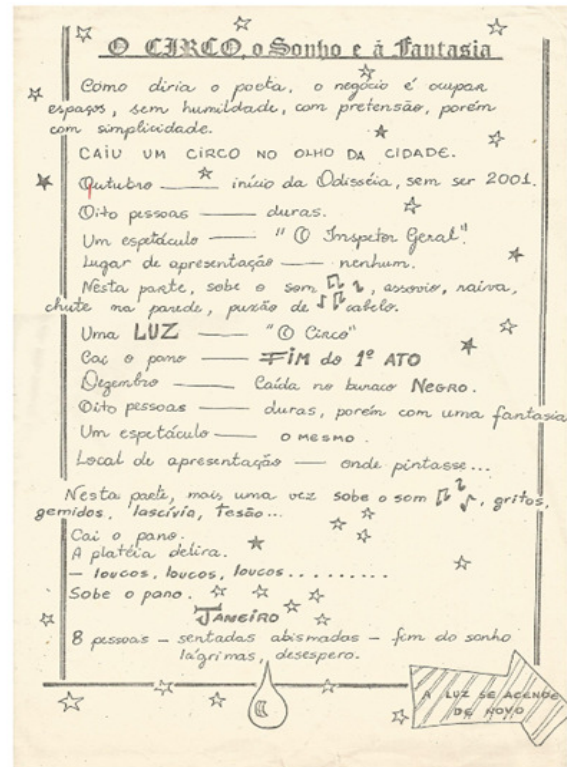 O CIRCO, o Sonho e à Fantasia
Como diria o poeta, o negócio é ocupar
espaços, sem humildade, com pretensão, porém
com simplicidade.
CAIU UM CIRCO NO OLHO DA CIDADE.
Outubro —— início da Odisséia, sem ser 2001.
Oito pessoas —— duras.
Um espetáculo —— "O Inspetor Geral".
Lugar de apresentação —— nenhum.
Nesta parte, sobe o som, assovio, raiva,
chute na parede, puxão de cabelo.
Uma LUZ —— "O Circo"
Cai o pano —— FIM do 1º ATO
Dezembro —— Caída no buraco NEGRO.
Oito pessoas —— duras, porém com uma fantasia
Um espetáculo —— O MESMO.
Local de apresentação —— onde pintasse...
Nesta parte, mais uma vez sobe o som, gritos,
gemidos, lascívia, Tesão...
Cai o pano.
A platéia delira.
— loucos, loucos, loucos.........
Sobe o pano.
JANEIRO
8 pessoas — sentadas abismadas — fim do sonho
lágrimas, desespero.
A LUZ SE ACENDE
DE NOVO